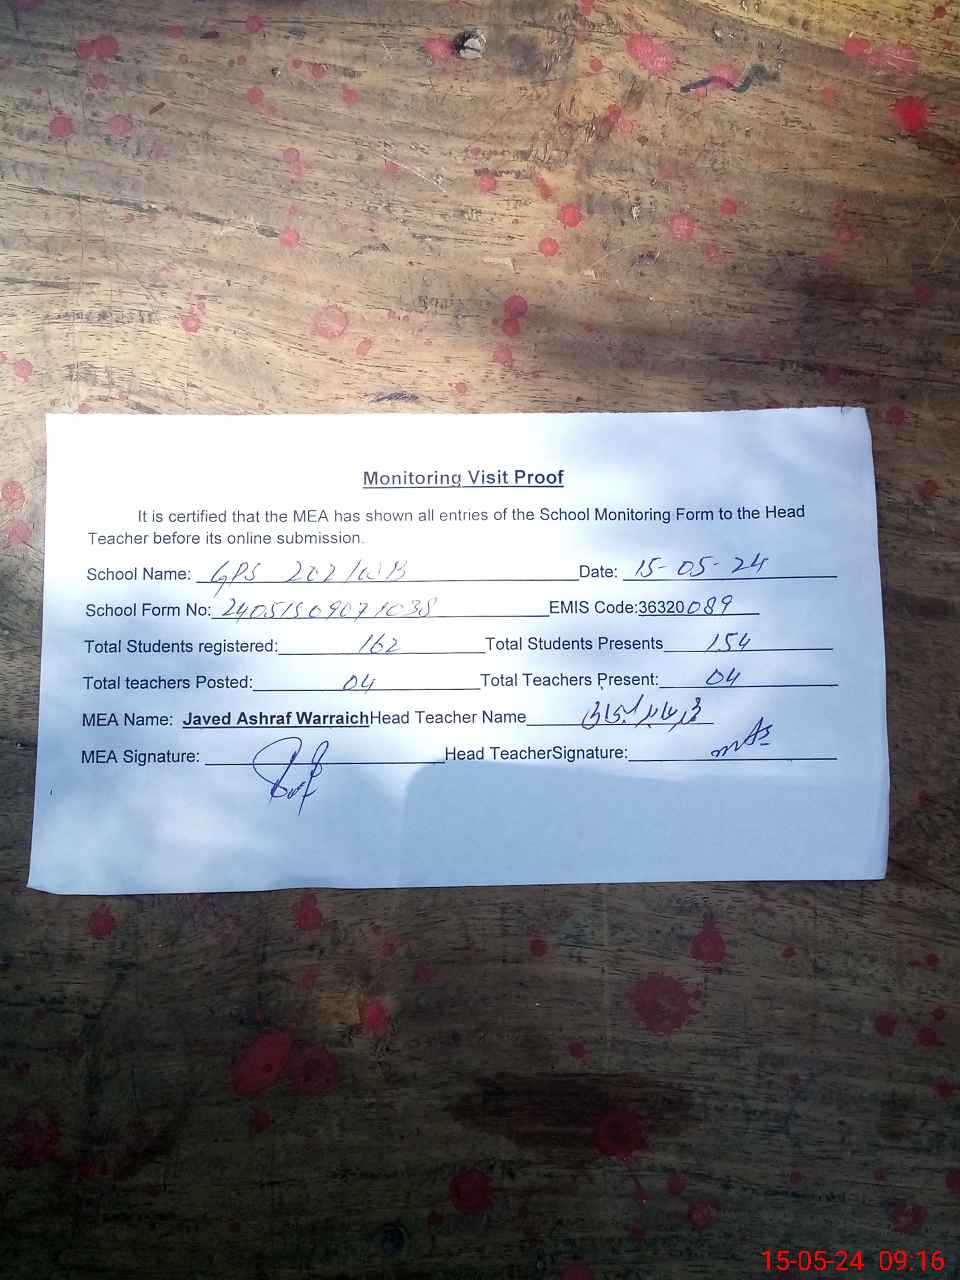 Monitoring Visit Proof
It is certified that the MEA has shown all entries of the School Monitoring Form to the Head
Teacher before its online submission.
School Name: GPS 202/WB Date: 15-05-24
School Form No: EMIS Code:36320089
Total Students registered: 162 Total Students Presents 154
Total teachers Posted: 04 Total Teachers Present: 04
MEA Name: Javed Ashraf Warraich Head Teacher Name
MEA Signature: Head TeacherSignature:
15-05-24 09:16